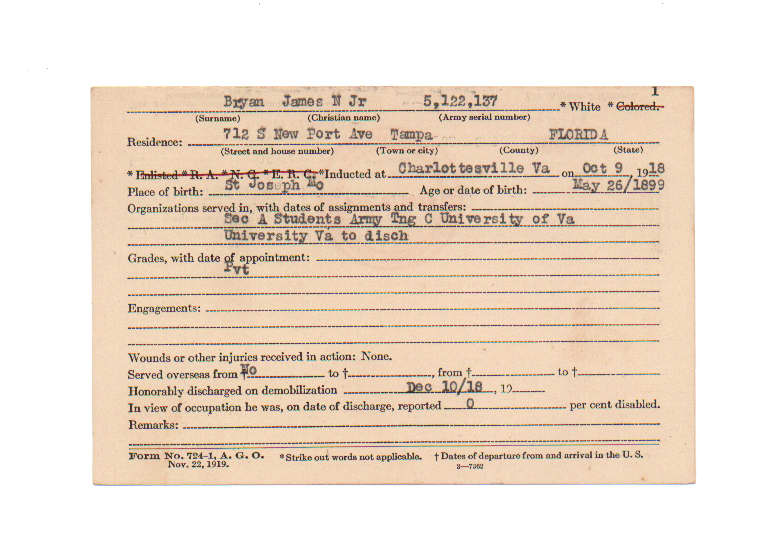 1
Bryan James N Jr 5,122,137 * White * Colored.
(Surname) (Christian name) (Army serial number)
Residence: 712 S New Port Ave Tampa FLORIDA
(Street and house number) (Town or city) (County) (State)
* Enlisted * R. A. * N. G. * E. R. C. * Inducted at Charlottesville Va on Oct 9, 1918
Place of birth: St Joseph Mo Age or date of birth: May 26/1899
Organizations served in, with dates of assignments and transfers:
Sec A Students Army Tng C University of Va
University Va to disch
Grades, with date of appointment:
Pvt
Engagements:
Wounds or other injuries received in action: None.
Served overseas from † No to †, from † to †
Honorably discharged on demobilization Dec 10/18, 19
In view of occupation he was, on date of discharge, reported 0 per cent disabled.
Remarks:
Form No. 724-1, A. G. O. * Strike out words not applicable. † Dates of departure from and arrival in the U. S.
Nov. 22, 1919. 3—7562